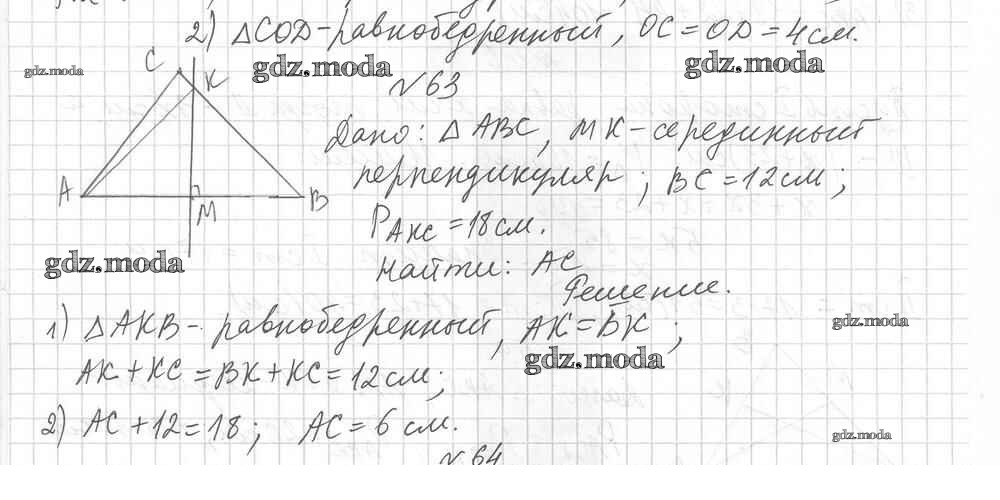 2) △COD-равнобедренный, OC=OD=4см.
gdz.moda gdz.moda gdz.moda
№63
C K
A M B
Дано: △ABC, MK-серединный
перпендикуляр; BC=12см;
P AKC =18см.
Найти: AC
gdz.moda
Решение.
1) △AKB- равнобедренный, AK=BK;
gdz.moda
gdz.moda
AK+KC=BK+KC=12см;
2) AC+12=18; AC=6 см.
gdz.moda
№64